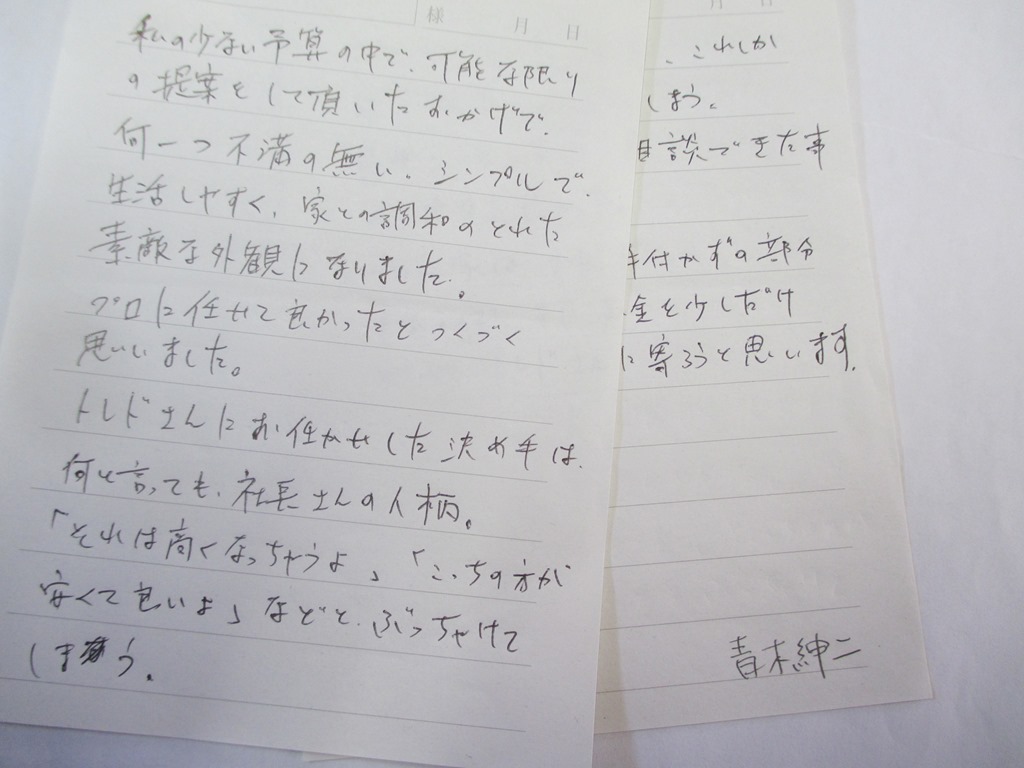 様 月 日
私の少ない予算の中で、可能な限り
の提案をして頂いたおかげで、
何一つ不満の無い。シンプルで、
生活しやすく、家との調和のとれた
素敵な外観になりました。
プロに任せて良かったとつくづく
思いいました。
トレドさんにお任かせした決め手は、
何と言っても、社長さんの人柄。
「それは高くなっちゃうよ」「こっちの方が
安くて良いよ」などと、ぶっちゃけて
しまう。
月 日
、これしか
しまう。
談できた事
手付かずの部分
金を少しだけ
に寄ろうと思います。
青木紳二